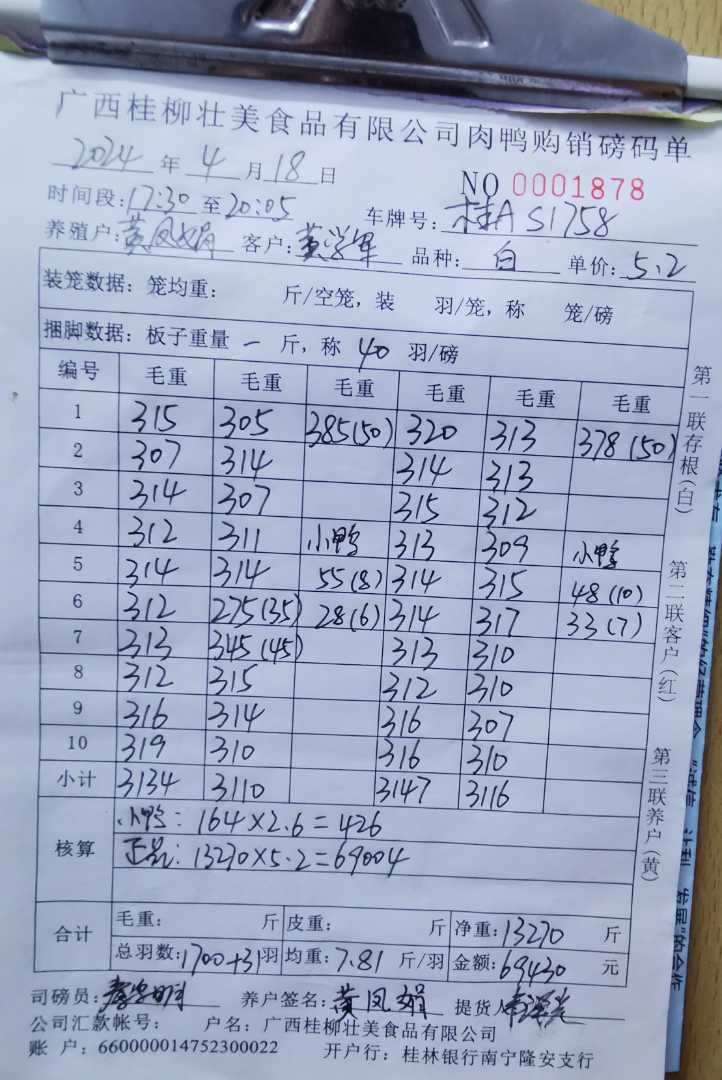 广西桂柳壮美食品有限公司肉鸭购销磅码单
2024 年 4 月 18 日
NO 0001878
时间段: 17:30 至 20:05 车牌号: 桂A S1758
养殖户: 黄凤娟 客户: 黄学军 品种: 白 单价: 5.2
装笼数据: 笼均重: 斤/空笼, 装 羽/笼, 称 笼/磅
捆脚数据: 板子重量 一 斤, 称 40 羽/磅
编号 毛重 毛重 毛重 毛重 毛重 毛重
1 315 305 385(50) 320 313 378(50)
2 307 314 314 313
3 314 307 315 312
4 312 311 小鸭 313 309 小鸭
5 314 314 55(8) 314 315 48(10)
6 312 275(35) 28(6) 314 317 33(7)
7 313 345(45) 313 310
8 312 315 312 310
9 316 314 316 307
10 319 310 316 310
小计 3134 3110 3147 3116
核算
小鸭: 164×2.6=426
正品: 13270×5.2=69004
合计
毛重: 斤 皮重: 斤 净重: 13270 斤
总羽数: 1700+31羽 均重: 7.81 斤/羽 金额: 69430 元
司磅员: 养户签名: 黄凤娟 提货人
公司汇款帐号: 户名: 广西桂柳壮美食品有限公司
账 户: 660000014752300022 开户行: 桂林银行南宁隆安支行
第一联存根(白)
第二联客户(红)
第三联养户(黄)